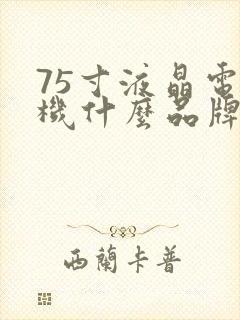 75寸液晶電
機什麼品牌
西蘭卡普